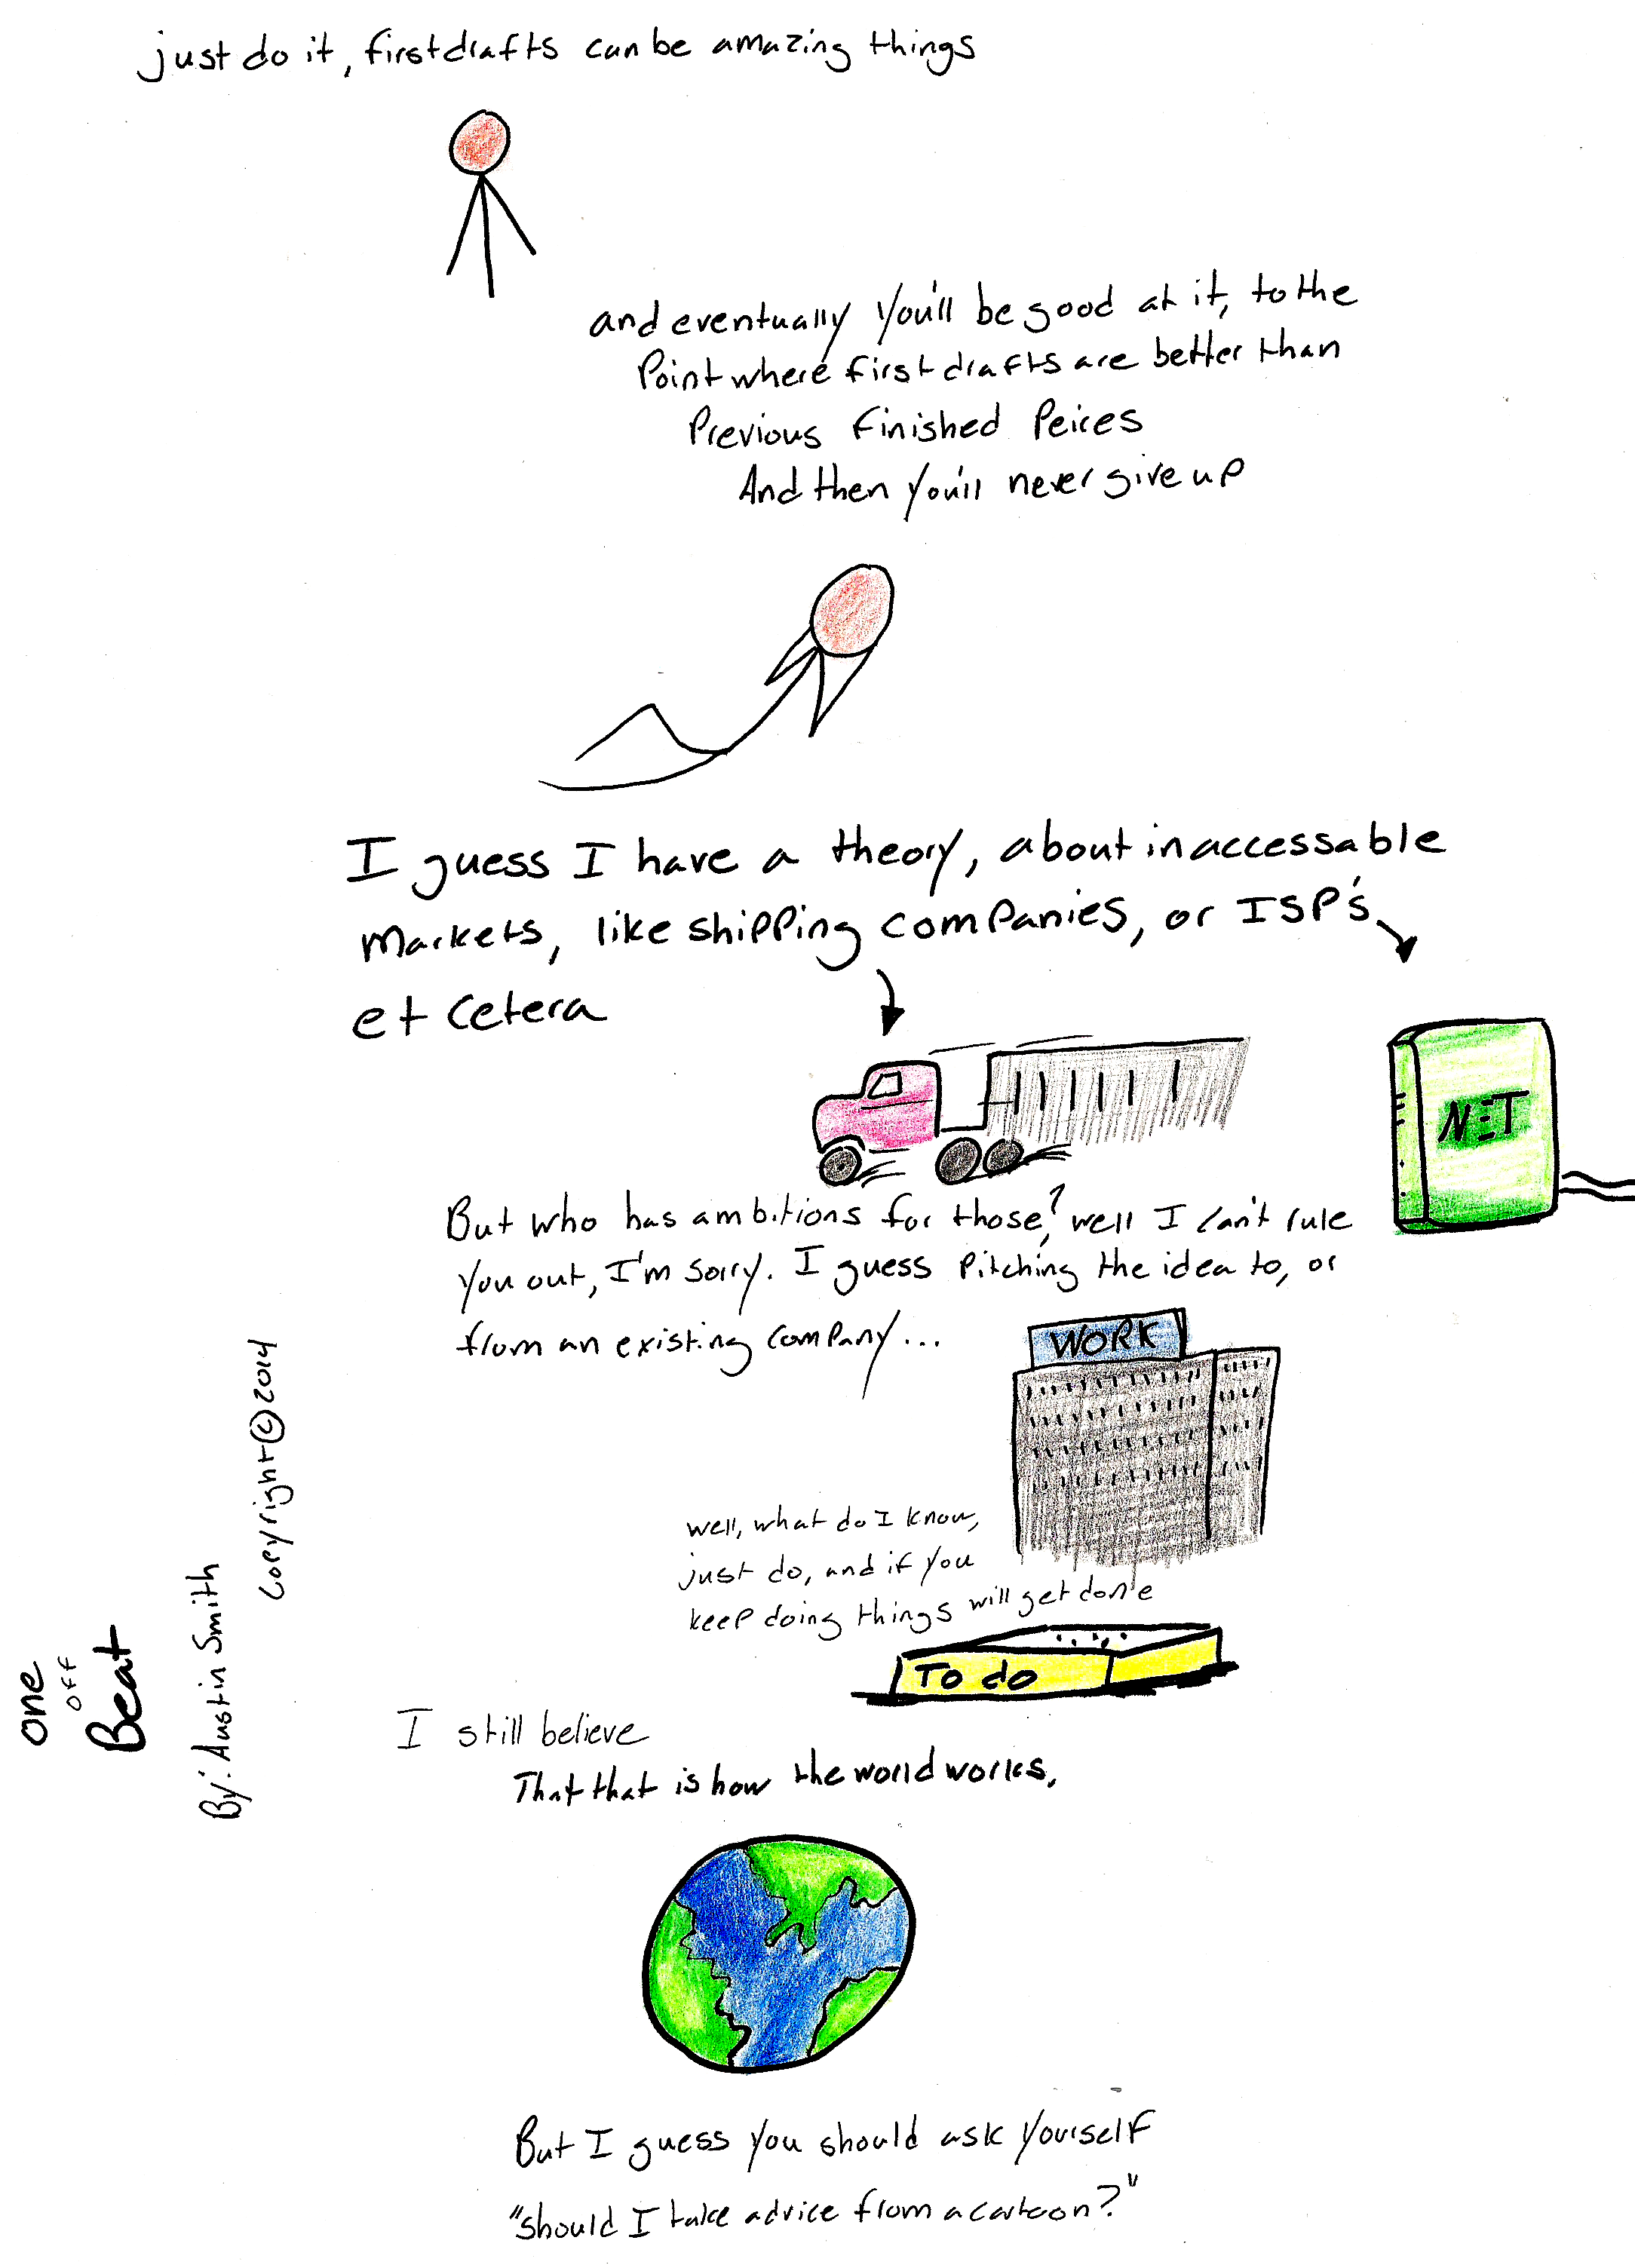 just do it, first drafts can be amazing things
and eventually you'll be good at it, to the
Point where first drafts are better than
Previous finished Peices
And then you'll never give up
I guess I have a theory, about inaccessable
markets, like shipping companies, or ISP's
et cetera
NET
But who has ambitions for those? well I can't rule
you out, I'm sorry. I guess Pitching the idea to, or
from an existing company...
WORK
well, what do I know,
just do, and if you
keep doing things will get done
To do
I still believe
That that is how the world works,
But I guess you should ask yourself
"should I take advice from a cartoon?"
one
off
Beat
By: Austin Smith
Copyright © 2014